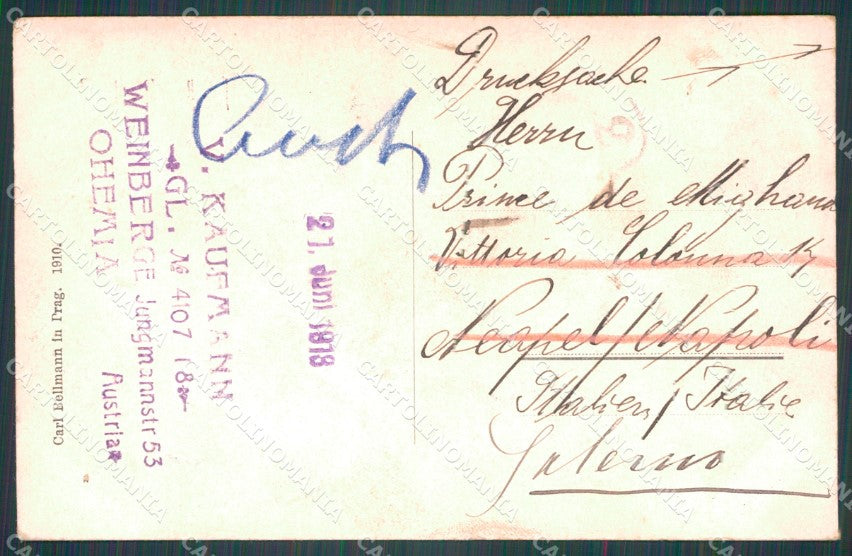 Drucksache
Herrn
Prince de Migliano
Vittoria Colonna 14
Neapel/Napoli
Italien/Italie
Salerno
V. KAUFMANN
GL. № 4107 (8
WEINBERGE Jungmannstr 53
OHEMIA Austria
21. Juni 1913
Carl Bellmann in Prag. 1910.
CARTOLINOMANIA